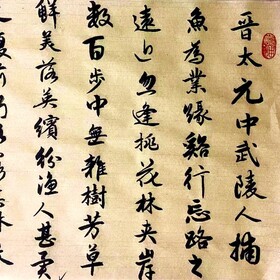 晉太元中武陵人捕
魚為業緣谿行忘路之
遠近忽逢桃花林夾岸
數百步中無雜樹芳草
鮮美落英繽紛漁人甚異